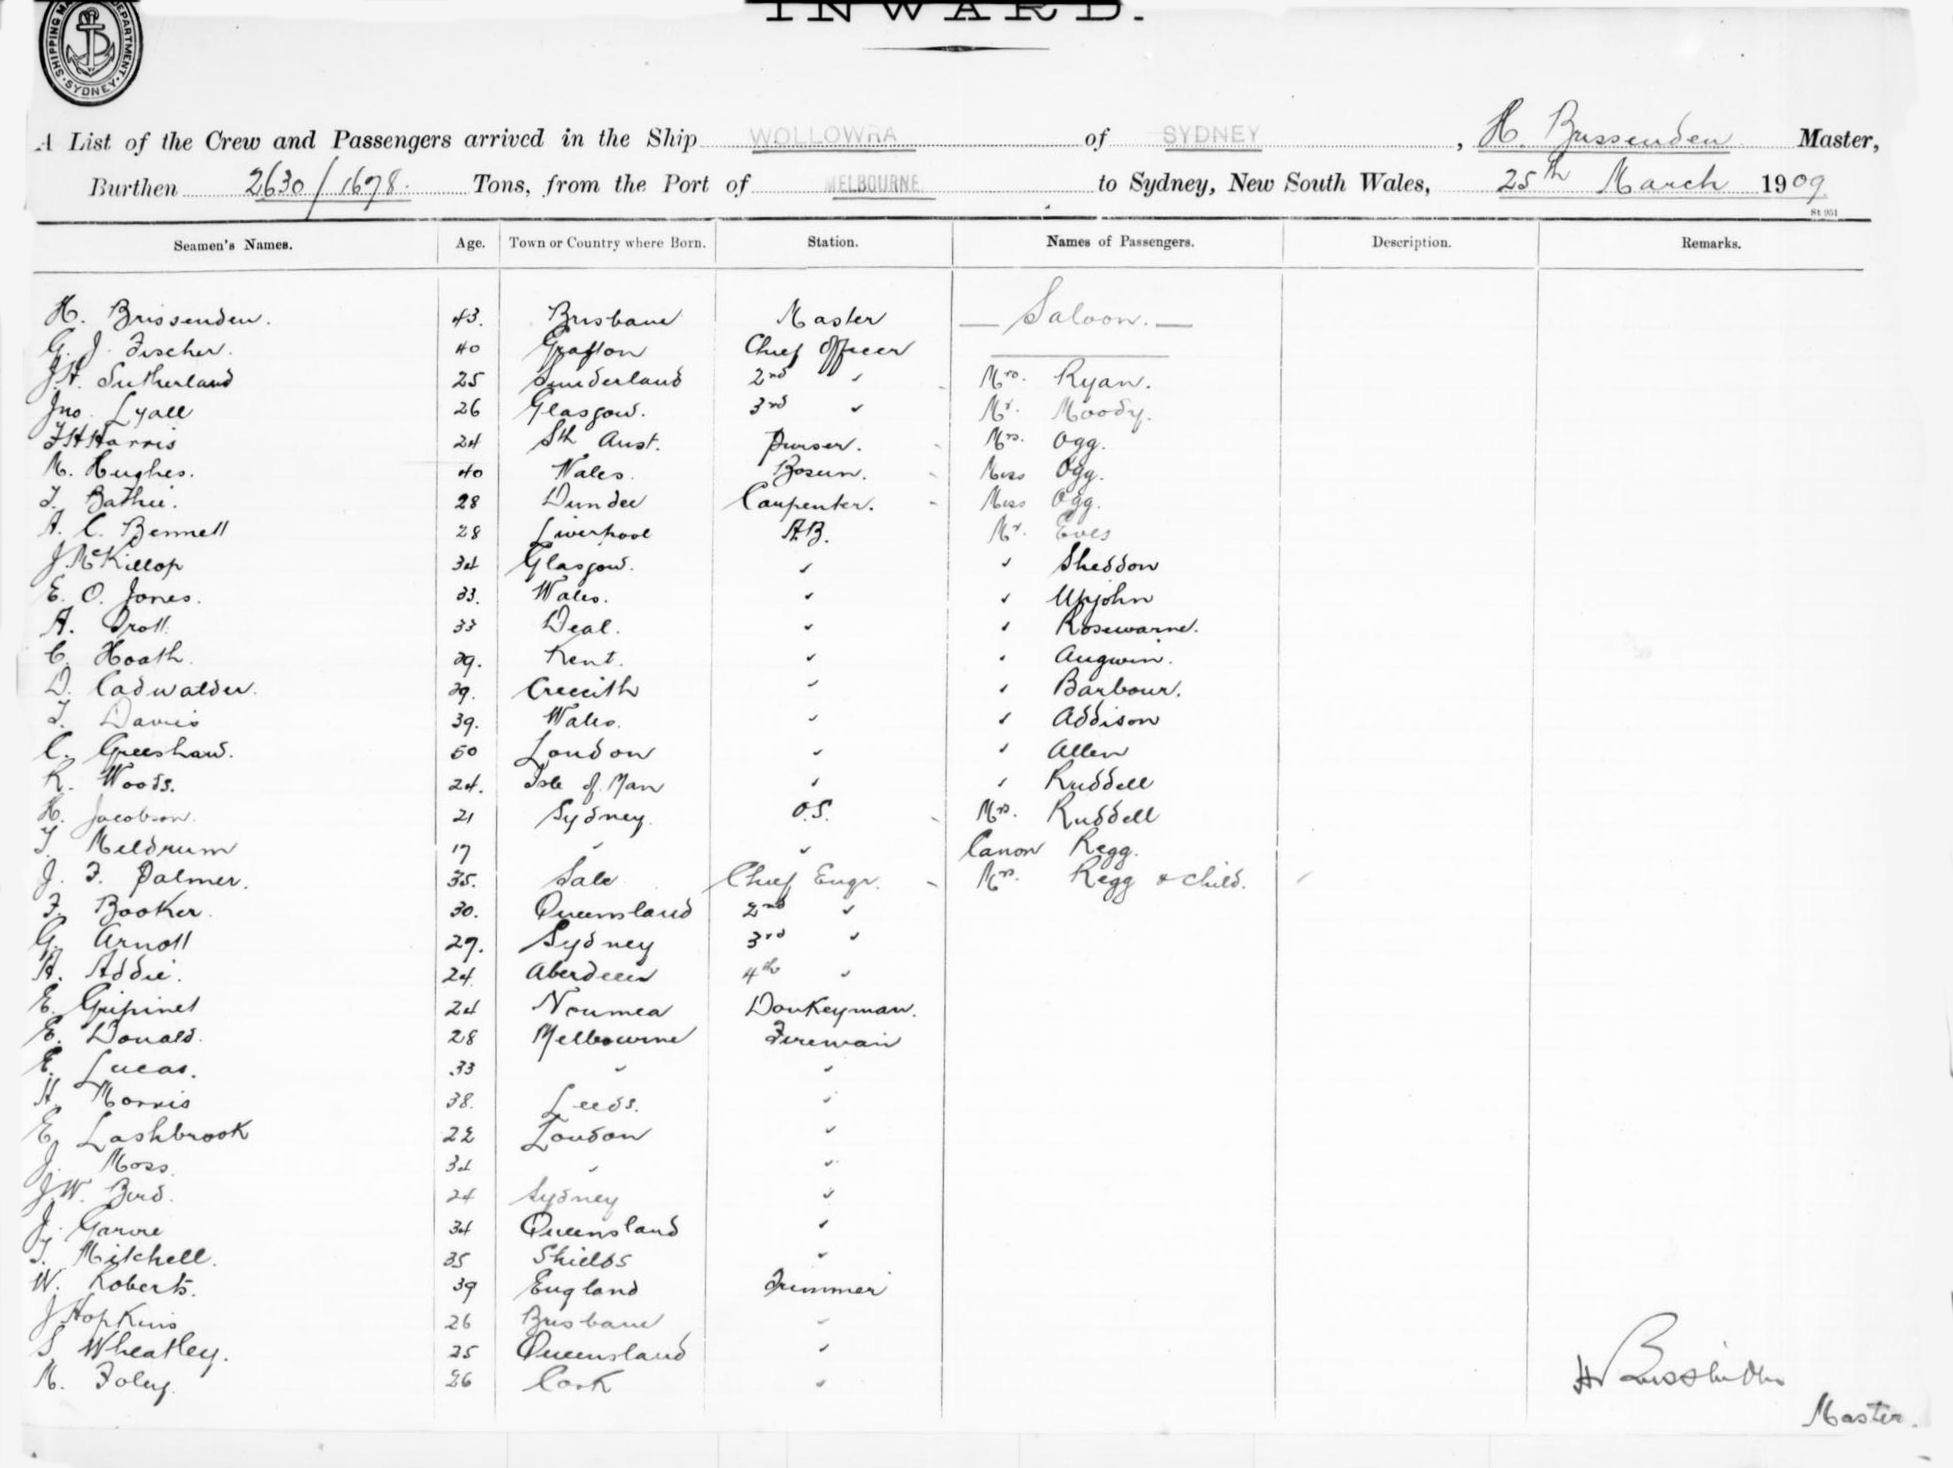 SHIPPING MA DEPARTMENT. SYDNEY
INWARD.
A List of the Crew and Passengers arrived in the Ship WOLLOWRA of SYDNEY, H. Brissenden Master,
Burthen 2630/1678. Tons, from the Port of MELBOURNE to Sydney, New South Wales, 25th March 1909
St 951
Seamen's Names. Age. Town or Country where Born. Station. Names of Passengers. Description. Remarks.
H. Brissenden. 43. Brisbane Master — Saloon. —
G. J. Fischer. 40 Grafton Chief Officer
J.H. Sutherland 25 Sunderland 2nd " Mrs. Ryan.
Jno. Lyall 26 Glasgow. 3rd " Mr. Moody.
F H Harris 24 Sth Aust. Purser. Mrs. Ogg.
M. Hughes. 40 Wales. Bosun. Miss Ogg.
T. Bathie. 28 Dundee Carpenter. Miss Ogg.
A. C. Bennett 28 Liverpool A.B. Mr. Eves
J McKillop 34 Glasgow. " " Sheddon
E. O. Jones. 33. Wales. " " Upjohn
A. Trott. 33 Deal. " " Rosewarne.
C. Hoath. 29. Kent. " " Augwin.
D. Cadwalder. 29. Creccith " " Barbour.
T. Davis 39. Wales. " " Addison
C. Greeshaw. 50 London " " Allen
R. Woods. 24. Isle of Man " " Ruddell
H. Jacobson. 21 Sydney. O.S. Mrs. Ruddell
T. Meldrum 17 " " Canon Regg.
J. F. Palmer. 35. Sale Chief Engr. Mrs. Regg & child.
F. Booker. 30. Queensland 2nd "
G. Arnott 27. Sydney 3rd "
A. Addie. 24. Aberdeen 4th "
E. Gripinet 24 Noumea Donkeyman.
E. Donald. 28 Melbourne Fireman
E. Lucas. 33 " "
H. Morris 38. Leeds. "
E. Lashbrook 22 London "
J. Moss. 34 " "
J.W. Bird. 24 Sydney "
J. Garvie 34 Queensland "
T. Mitchell. 35 Shields "
W. Roberts. 39 England Trimmer
J Hopkins 26 Brisbane "
S Wheatley. 25 Queensland "
M. Foley. 26 Cork "
H Brissenden
Master.